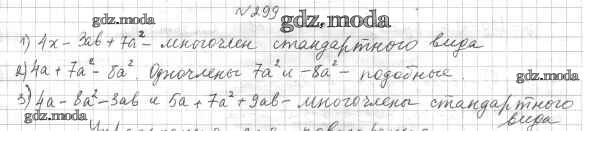 №299
gdz.moda gdz.moda
1) 4x - 3ab + 7a² - многочлен стандартного вида
2) 4a + 7a² - 8a². Одночлены 7a² и -8a² - подобные.
gdz.moda
3) 4a - 8a² - 3ab и 5a + 7a² + 9ab - многочлены стандартного
вида
gdz.moda